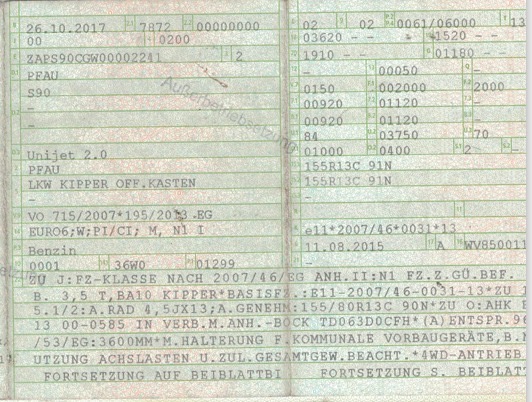 26.10.2017 7872 00000000
00 0200
ZAPS90CGW00002241 2
PFAU
S90
-
-
Unijet 2.0
PFAU
LKW KIPPER OFF.KASTEN
-
VO 715/2007*195/2013 EG
EURO6;W;PI/CI; M, N1 I
Benzin
0001 36W0 01299
Außerbetriebsetzung
02 02 0061/06000 13
03620 - - 1520 - -
1910 - - 01180 - -
- 00050 -
0150 002000 2000
00920 01120 -
00920 01120 -
84 03750 70
01000 0400 2 -
155R13C 91N
155R13C 91N
-
-
e11*2007/46*0031*13
11.08.2015 A WV850011
-
ZU J:FZ-KLASSE NACH 2007/46/EG ANH.II:N1 FZ.Z.GÜ.BEF.
B. 3,5 T,BA10 KIPPER*BASISFZ.:E11-2007/46-0031-13*ZU 1
5.1/2:A.RAD 4,5JX13;A.GENEHM:155/80R13C 90N*ZU O:AHK
13 00-0585 IN VERB.M.ANH.-BOCK TD063D0CFH*(A)ENTSPR.96
/53/EG:3600MM*M.HALTERUNG F.KOMMUNALE VORBAUGERÄTE,B.
UTZUNG ACHSLASTEN U.ZUL.GESAMTGEW.BEACHT.*4WD-ANTRIEB
FORTSETZUNG AUF BEIBLATTBI FORTSETZUNG S. BEIBLAT